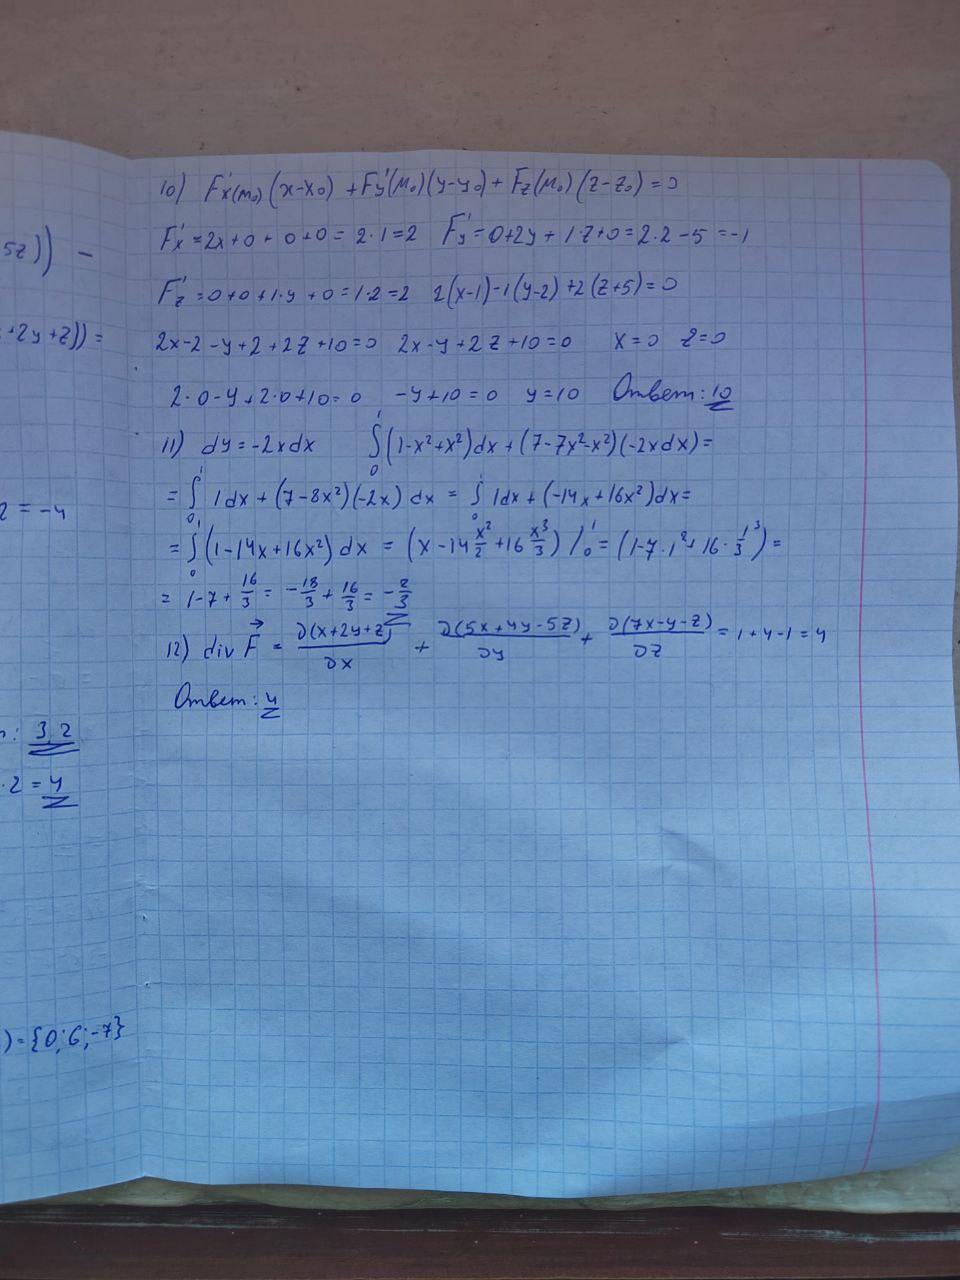 5z)) −
+2y+z)) =
2 = −4
: 3,2
·2 = 4
) = {0; 6; −7}
10) F'x(M₀)(x−x₀) + Fy'(M₀)(y−y₀) + Fz(M₀)(z−z₀) = 0
F'x = 2x+0+0+0 = 2·1 = 2 F'y = 0+2y+1·z+0 = 2·2−5 = −1
F'z = 0+0+1·y+0 = 1·2 = 2 2(x−1)−1(y−2)+2(z+5) = 0
2x−2−y+2+2z+10 = 0 2x−y+2z+10 = 0 x = 0 z = 0
2·0−y+2·0+10 = 0 −y+10 = 0 y = 10 Ответ: 10
11) dy = −2xdx ∫₀¹(1−x²+x²)dx + (7−7x²−x²)(−2xdx) =
= ∫₀¹ 1dx + (7−8x²)(−2x)dx = ∫₀¹ 1dx + (−14x+16x²)dx =
= ∫₀¹(1−14x+16x²)dx = (x−14 x²/2 + 16 x³/3) /₀¹ = (1−7·1²+16·1³/3) =
= 1−7+16/3 = −18/3 + 16/3 = −2/3
12) div F⃗ = ∂(x+2y+z)/∂x + ∂(5x+4y−5z)/∂y + ∂(7x−y−z)/∂z = 1+4−1 = 4
Ответ: 4